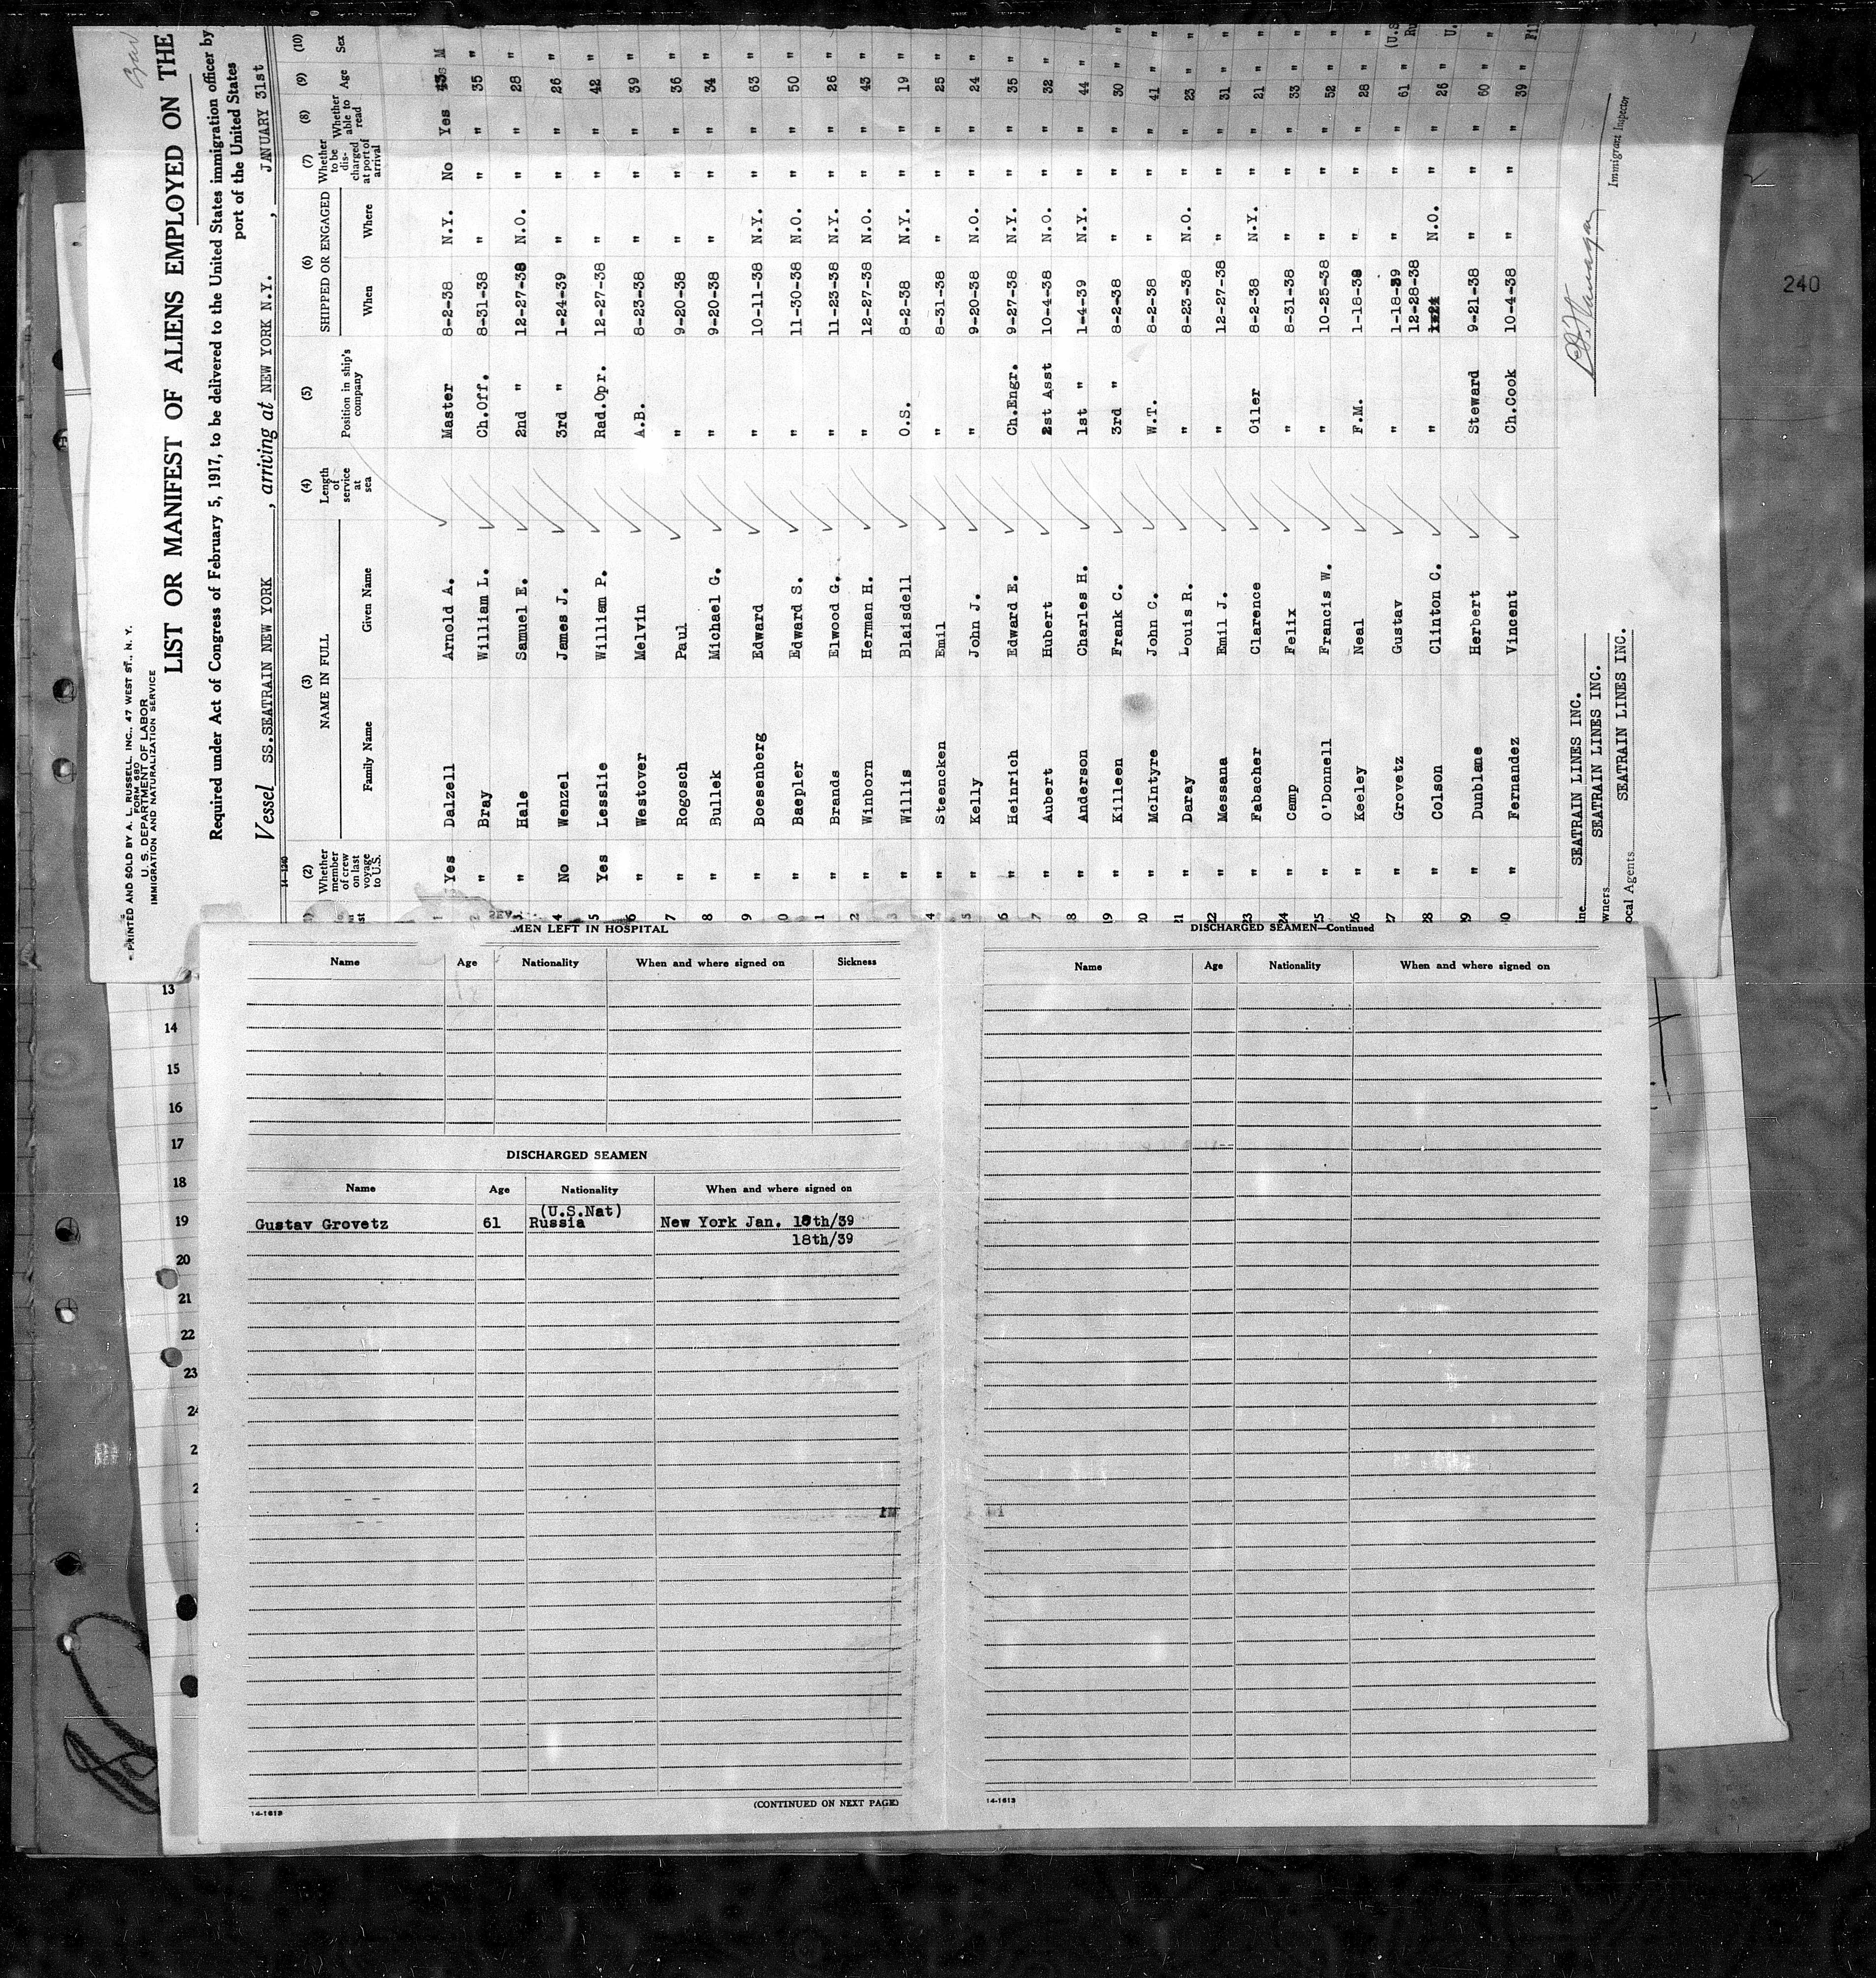 PRINTED AND SOLD BY A. L. RUSSELL, INC., 47 WEST ST., N. Y.
FORM 680
U. S. DEPARTMENT OF LABOR
IMMIGRATION AND NATURALIZATION SERVICE
LIST OR MANIFEST OF ALIENS EMPLOYED ON THE
Required under Act of Congress of February 5, 1917, to be delivered to the United States immigration officer by
port of the United States
Vessel SS.SEATRAIN NEW YORK, arriving at NEW YORK N.Y., JANUARY 31st
14-1240
(2) Whether member of crew on last voyage to U.S. (3) NAME IN FULL Family Name Given Name (4) Length of service at sea (5) Position in ship's company (6) SHIPPED OR ENGAGED When Where (7) Whether to be discharged at port of arrival (8) Whether able to read (9) Age (10) Sex
1 Yes Dalzell Arnold A. Master 8-2-38 N.Y. No Yes M
2 " Bray William L. Ch.Off. 8-31-38 " " " 35 "
3 " Hale Samuel E. 2nd " 12-27-38 N.O. " " 28 "
4 No Wenzel James J. 3rd " 1-24-39 " " " 26 "
5 Yes Lesslie William P. Rad.Opr. 12-27-38 " " " 42 "
6 " Westover Melvin A.B. 8-23-38 " " " 39 "
7 " Rogosch Paul " 9-20-38 " " " 36 "
8 " Bullek Michael G. " 9-20-38 " " " 34 "
9 " Boesenberg Edward " 10-11-38 N.Y. " " 63 "
0 " Baepler Edward S. " 11-30-38 N.O. " " 50 "
1 " Brands Elwood G. " 11-23-38 N.Y. " " 26 "
2 " Winborn Herman H. " 12-27-38 N.O. " " 43 "
3 " Willis Blaisdell O.S. 8-2-38 N.Y. " " 19 "
4 " Steencken Emil " 8-31-38 " " " 25 "
5 " Kelly John J. " 9-20-38 N.O. " " 24 "
6 " Heinrich Edward E. Ch.Engr. 9-27-38 N.Y. " " 35 "
7 " Aubert Hubert 2st Asst 10-4-38 N.O. " " 32 "
18 " Anderson Charles H. 1st " 1-4-39 N.Y. " " 44 "
19 " Killeen Frank C. 3rd " 8-2-38 " " " 30 "
20 " McIntyre John C. W.T. 8-2-38 " " " 41 "
21 " Daray Louis R. " 8-23-38 N.O. " " 23 "
22 " Messana Emil J. " 12-27-38 " " " 31 "
23 " Fabacher Clarence Oiler 8-2-38 N.Y. " " 21 "
24 " Camp Felix " 8-31-38 " " " 33 "
25 " O'Donnell Francis W. " 10-25-38 " " " 52 "
26 " Keeley Neal F.M. 1-18-38 " " " 28 "
27 " Grovetz Gustav " 1-18-39 " " " 61 " (U.S Ru
28 " Colson Clinton C. " 12-28-38 N.O. " " 26 " U.
29 " Dunblane Herbert Steward 9-21-38 " " " 60 "
30 " Fernandez Vincent Ch.Cook 10-4-38 " " " 39 " Fil
ine SEATRAIN LINES INC.
wners SEATRAIN LINES INC.
ocal Agents SEATRAIN LINES INC.
Immigrant Inspector
240
MEN LEFT IN HOSPITAL
Name Age Nationality When and where signed on Sickness
DISCHARGED SEAMEN
Name Age Nationality When and where signed on
(U.S.Nat)
Gustav Grovetz 61 Russia New York Jan. 18th/39
18th/39
(CONTINUED ON NEXT PAGE)
14-1613
DISCHARGED SEAMEN—Continued
Name Age Nationality When and where signed on
14-1613
13
14
15
16
17
18
19
20
21
22
23
24
2
2